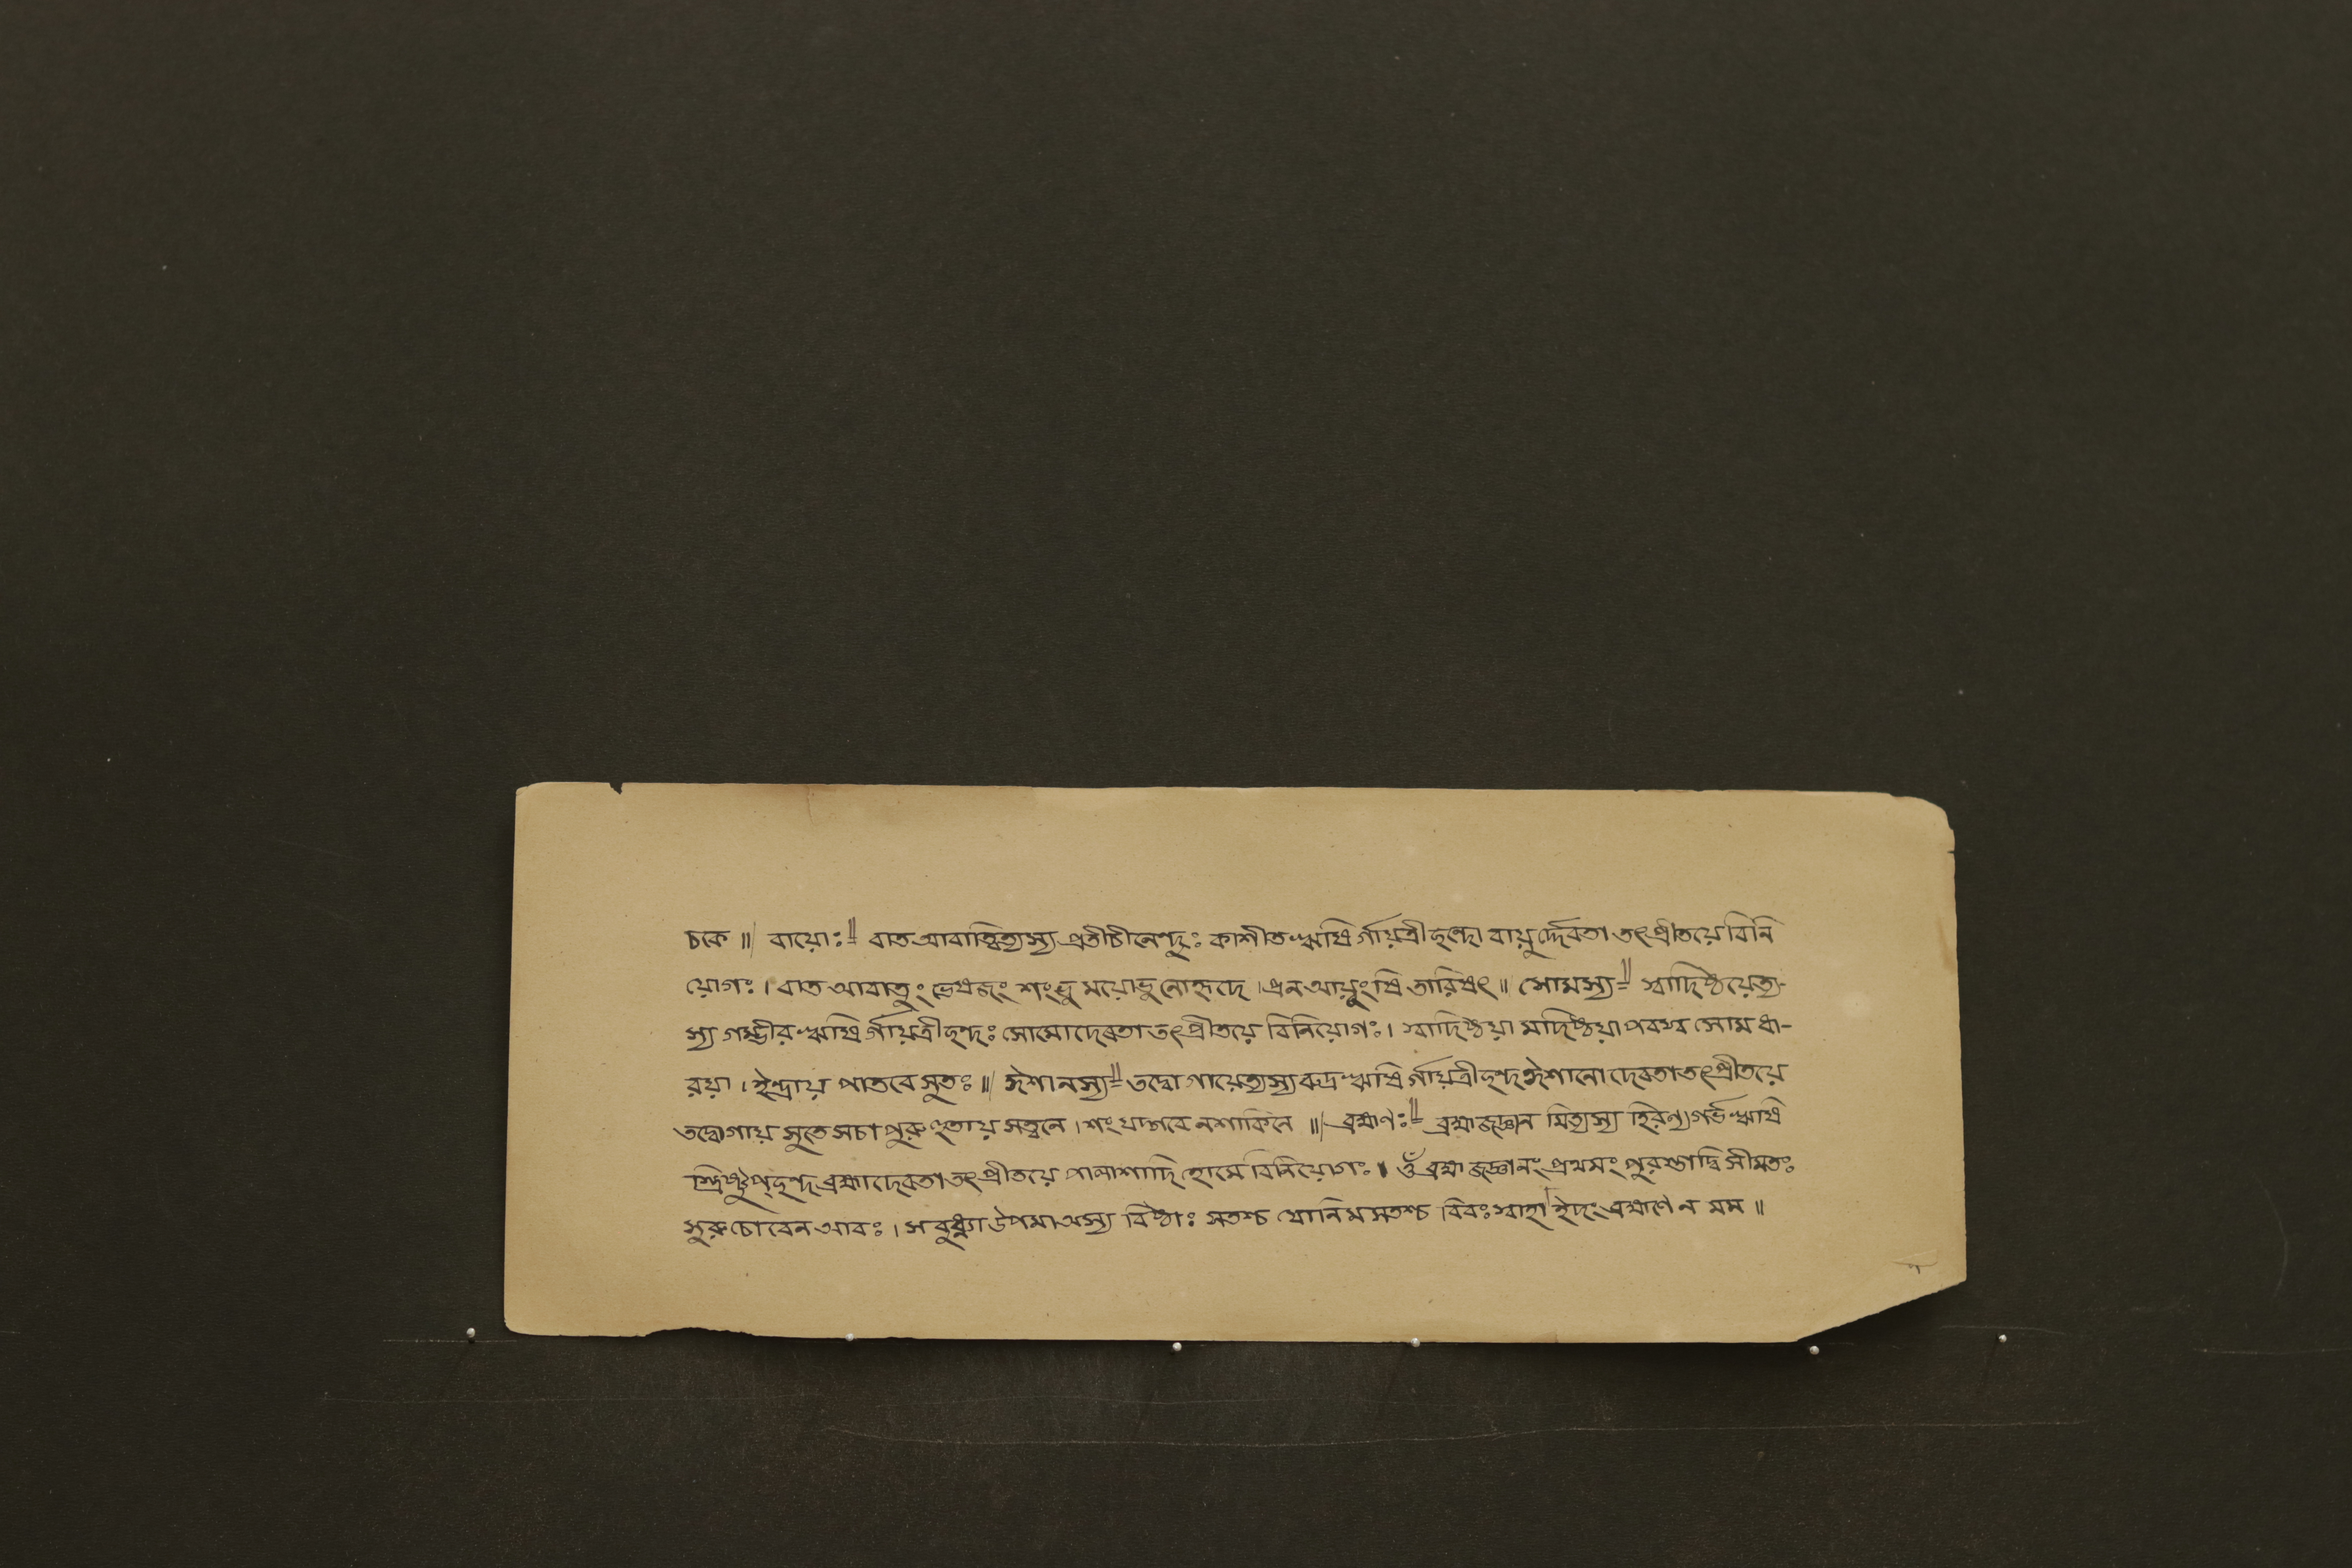 চকে ॥ বায়োঃ॥= বাত আবাত্বিত্যস্য প্রতীচীনেন্দুঃ কাশীত ঋষি র্গায়ত্রীছন্দো বায়ুর্দ্দেবতা তৎপ্রীতয়ে বিনি
য়োগঃ । বাত আবাতুং ভেষজং শংভু ময়োভু নোহৃদে । প্রন আয়ুংষি তারিষৎ ॥ সোমস্য॥= স্বাদিষ্ঠয়েত্য-
স্য গম্ভীর ঋষি র্গায়ত্রীছন্দঃ সোমোদেবতা তৎপ্রীতয়ে বিনিয়োগঃ । স্বাদিষ্ঠয়া মাদিষ্ঠয়া পবস্ব সোম ধা-
রয়া । ইন্দ্রায় পাতবে সুতঃ ॥ ঈশানস্য॥= তদ্বো গায়েত্যস্য রুদ্র ঋষি র্গায়ত্রীছন্দ ঈশানো দেবতা তৎপ্রীতয়ে
তদ্বোগায় সুতে সচা পুরুহুতায় সত্বনে । শং যদ্গবে নশাকিনে ॥ ব্রহ্মণঃ॥= ব্রহ্মজজ্ঞান মিত্যস্য হিরণ্যগর্ভ ঋষি
স্ত্রিষ্টুপ্ছন্দ ব্রহ্মাদেবতা তৎপ্রীতয়ে পালাশাদি হোমে বিনিয়োগঃ । ওঁ ব্রহ্ম জজ্ঞানং প্রথমং পুরস্তাদ্বি সীমতঃ
সুরুচো বেন আবঃ । স বুধ্ন্যা উপমা অস্য বিষ্ঠাঃ সতশ্চ যোনি মসতশ্চ বিবঃ স্বাহা ইদং ব্রহ্মণে ন মম ॥